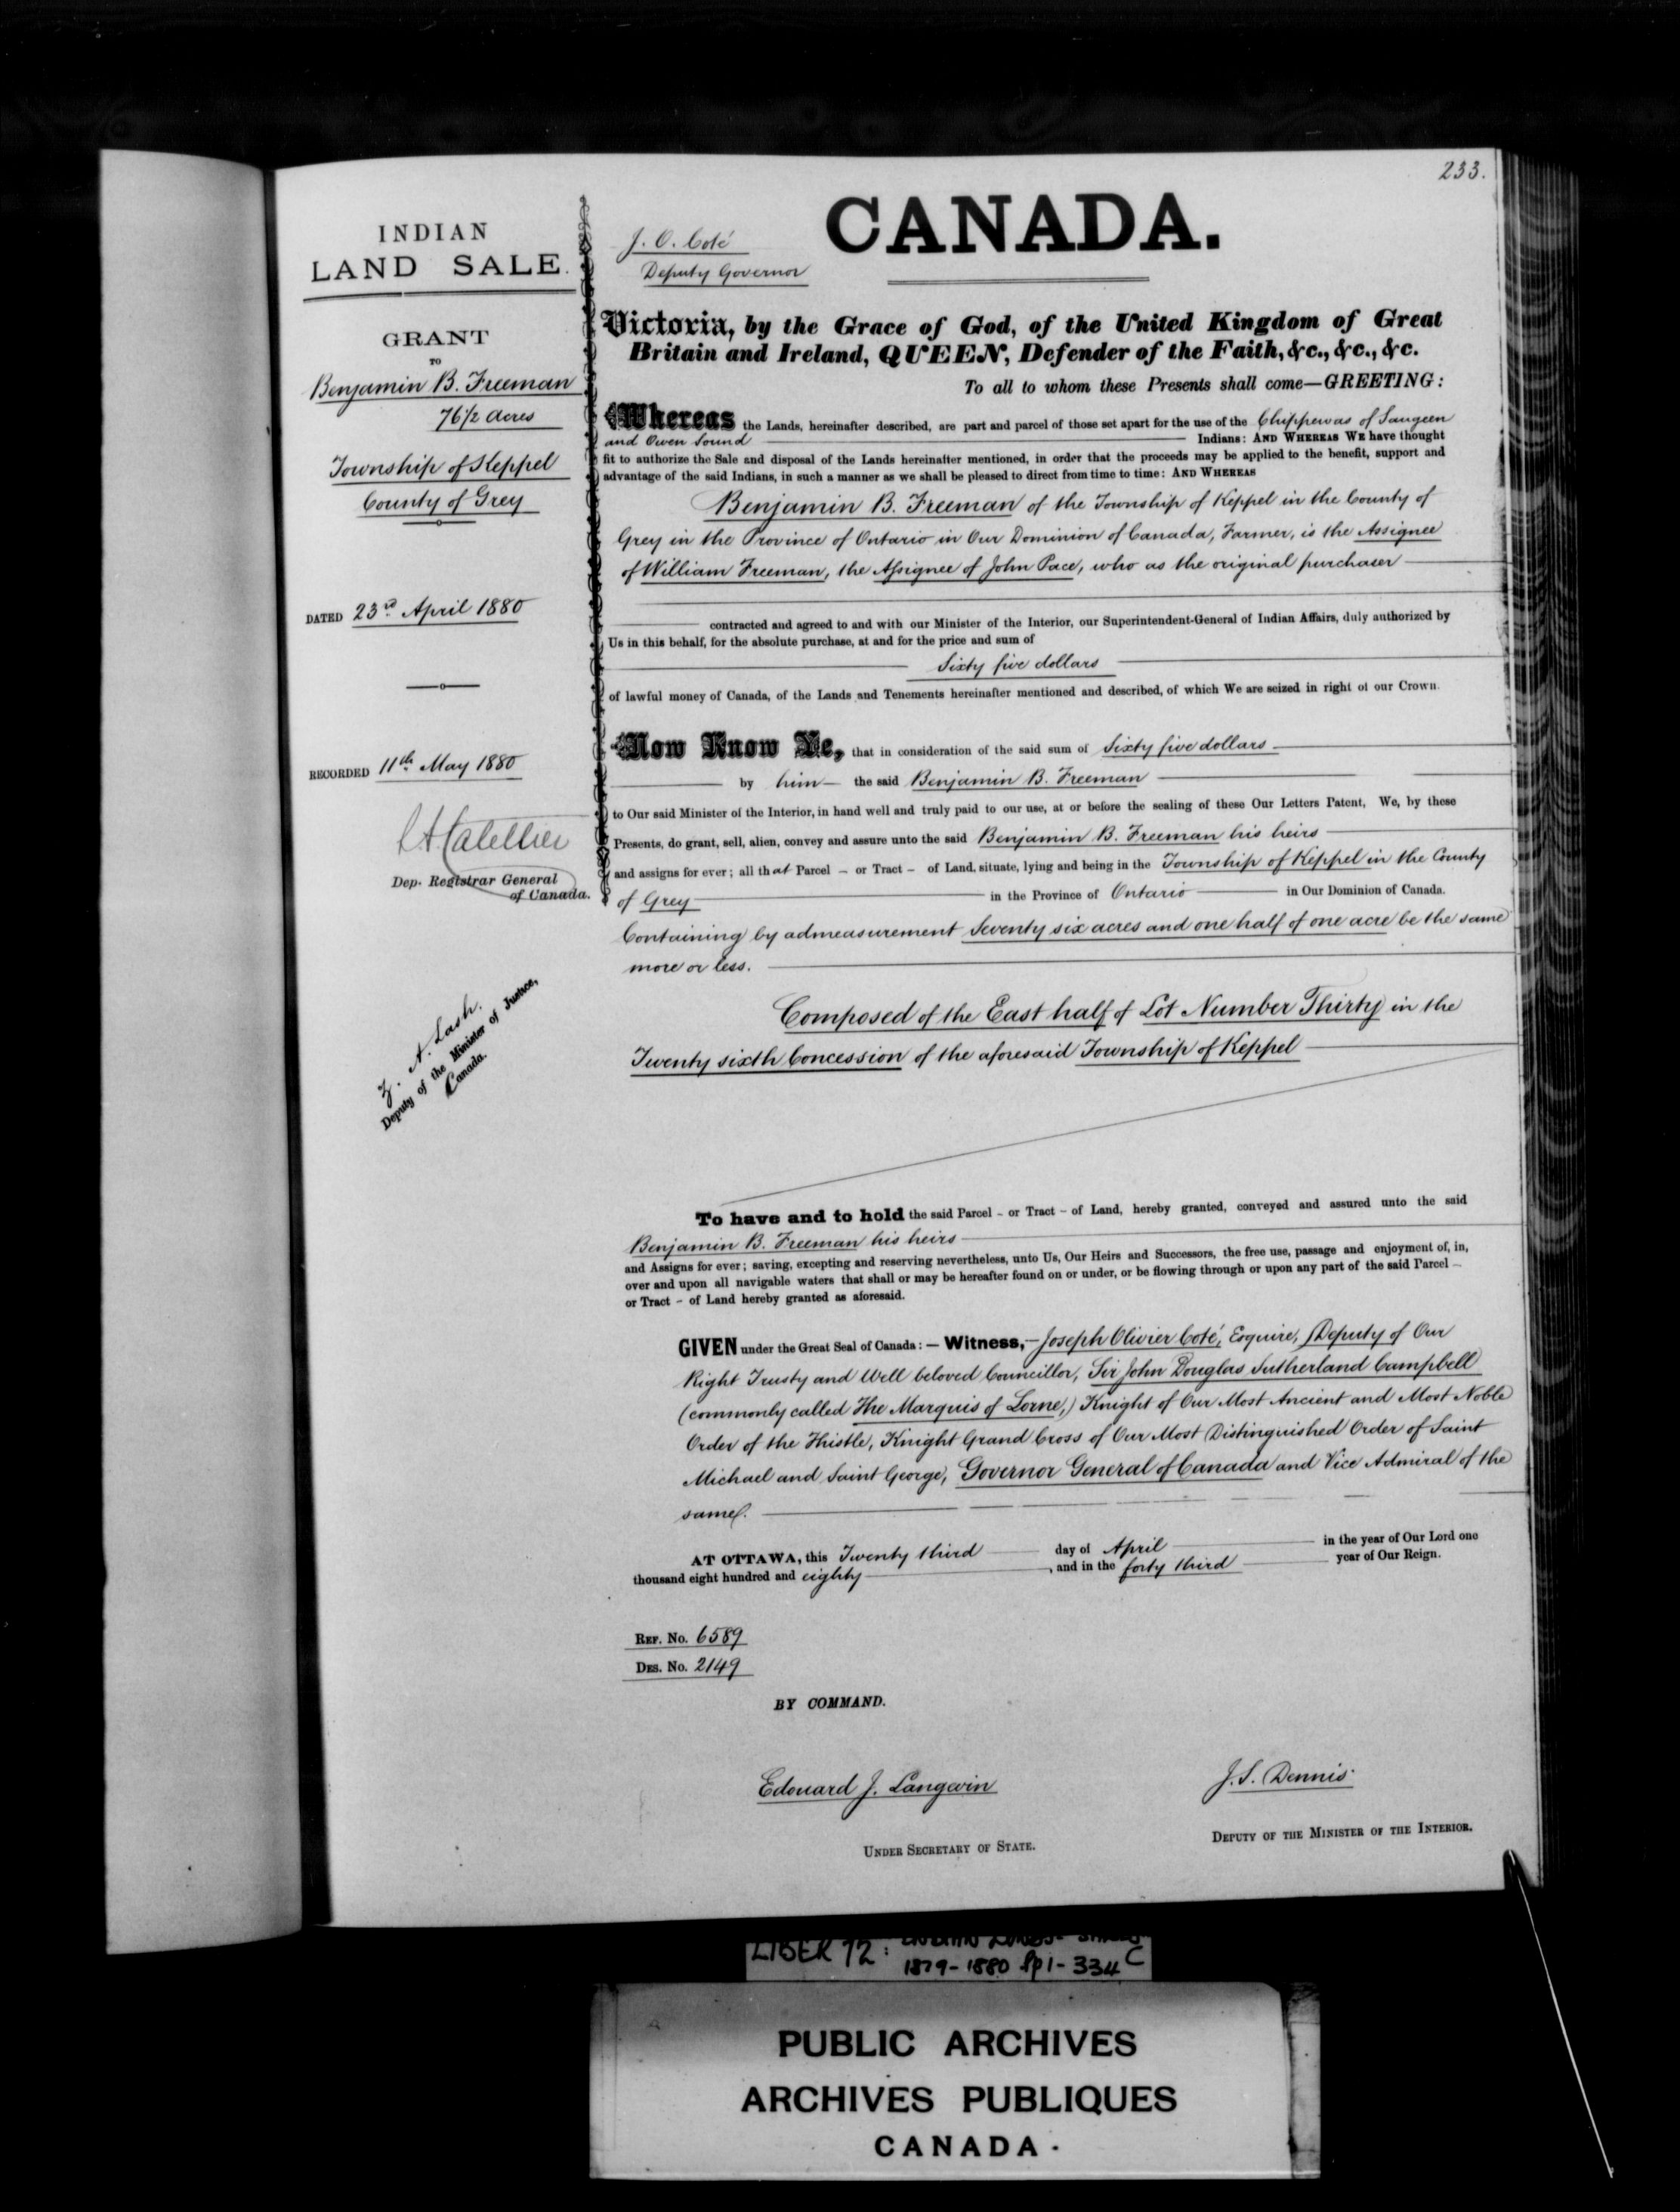 233.
INDIAN
LAND SALE.
GRANT
TO
Benjamin B. Freeman
76 1/2 Acres
Township of Keppel
County of Grey
DATED 23rd April 1880
RECORDED 11th May 1880
Dep. Registrar General
of Canada.
Z. A. Lash.
Deputy of the Minister of Justice,
Canada.
J. O. Coté
Deputy Governor
CANADA.
Victoria, by the Grace of God, of the United Kingdom of Great
Britain and Ireland, QUEEN, Defender of the Faith, &c., &c., &c.
To all to whom these Presents shall come—GREETING:
Whereas the Lands, hereinafter described, are part and parcel of those set apart for the use of the Chippewas of Saugeen
and Owen Sound Indians: AND WHEREAS WE have thought
fit to authorize the Sale and disposal of the Lands hereinafter mentioned, in order that the proceeds may be applied to the benefit, support and
advantage of the said Indians, in such a manner as we shall be pleased to direct from time to time: AND WHEREAS
Benjamin B. Freeman of the Township of Keppel in the County of
Grey in the Province of Ontario in Our Dominion of Canada, Farmer, is the Assignee
of William Freeman, the Assignee of John Pace, who as the original purchaser
contracted and agreed to and with our Minister of the Interior, our Superintendent-General of Indian Affairs, duly authorized by
Us in this behalf, for the absolute purchase, at and for the price and sum of
Sixty five dollars
of lawful money of Canada, of the Lands and Tenements hereinafter mentioned and described, of which We are seized in right of our Crown.
Now Know Ye, that in consideration of the said sum of Sixty five dollars
by him — the said Benjamin B. Freeman
to Our said Minister of the Interior, in hand well and truly paid to our use, at or before the sealing of these Our Letters Patent, We, by these
Presents, do grant, sell, alien, convey and assure unto the said Benjamin B. Freeman his heirs
and assigns for ever; all that Parcel – or Tract – of Land, situate, lying and being in the Township of Keppel in the County
of Grey in the Province of Ontario in Our Dominion of Canada.
Containing by admeasurement Seventy six acres and one half of one acre be the same
more or less.
Composed of the East half of Lot Number Thirty in the
Twenty sixth Concession of the aforesaid Township of Keppel
To have and to hold the said Parcel – or Tract – of Land, hereby granted, conveyed and assured unto the said
Benjamin B. Freeman his heirs
and Assigns for ever; saving, excepting and reserving nevertheless, unto Us, Our Heirs and Successors, the free use, passage and enjoyment of, in,
over and upon all navigable waters that shall or may be hereafter found on or under, or be flowing through or upon any part of the said Parcel –
or Tract – of Land hereby granted as aforesaid.
GIVEN under the Great Seal of Canada: — Witness, — Joseph Olivier Coté, Esquire, Deputy of Our
Right Trusty and Well beloved Councillor, Sir John Douglas Sutherland Campbell
(commonly called The Marquis of Lorne,) Knight of Our Most Ancient and Most Noble
Order of the Thistle, Knight Grand Cross of Our Most Distinguished Order of Saint
Michael and Saint George, Governor General of Canada and Vice Admiral of the
same.
AT OTTAWA, this Twenty third day of April in the year of Our Lord one
thousand eight hundred and eighty, and in the forty third year of Our Reign.
REF. No. 6589
DES. No. 2149
BY COMMAND.
Edouard J. Langevin
UNDER SECRETARY OF STATE.
J. S. Dennis.
DEPUTY OF THE MINISTER OF THE INTERIOR.
LIBER 72:
1879-1880 pp 1-334 C
PUBLIC ARCHIVES
ARCHIVES PUBLIQUES
CANADA